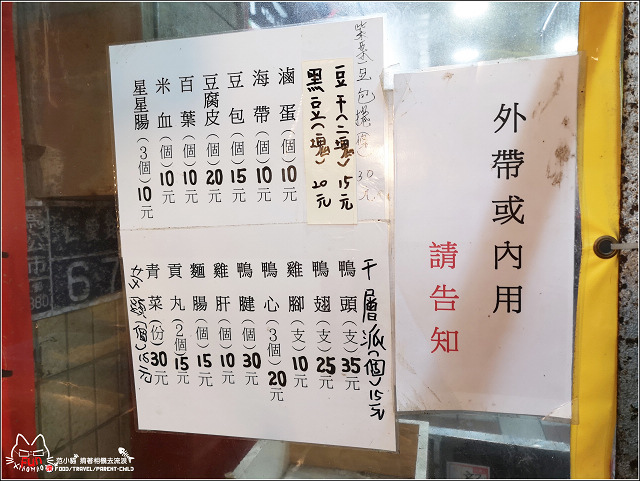 滷蛋(個)10元
海帶(個)10元
豆包(個)15元
豆腐皮(個)20元
百葉(個)10元
米血(個)10元
星星腸(3個)10元
豆干(二塊)15元
黑豆(塊)20元
千層派(個)15元
鴨頭(支)35元
鴨翅(支)25元
雞腳(支)10元
鴨心(3個)20元
鴨腱(個)30元
雞肝(個)10元
麵腸(個)15元
貢丸(2個)15元
青菜(份)30元
外帶或內用
請告知
67
XIAOMAO
范小貓 揹著相機去流浪
FOOD/TRAVEL/PARENT-CHILD